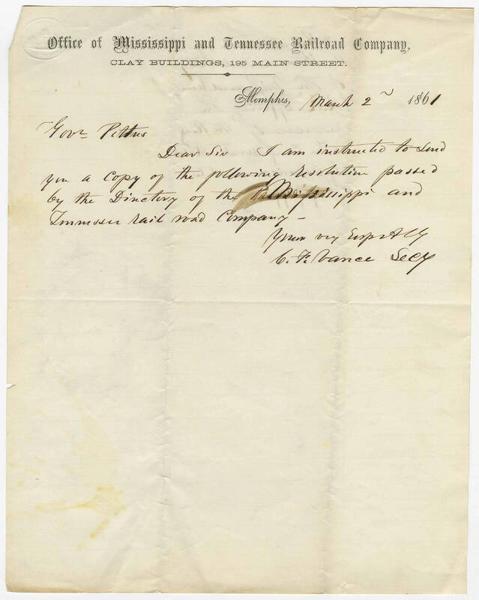 Office of Mississippi and Tennessee Railroad Company,
CLAY BUILDINGS, 195 MAIN STREET.
Memphis, March 2d 1861
Govr Pettus
Dear Sir I am instructed to send
you a copy of the following resolution passed
by the Directory of the Mississippi and
Tennessee rail road Company -
Yours very Respctly
C. F. Vance Secy